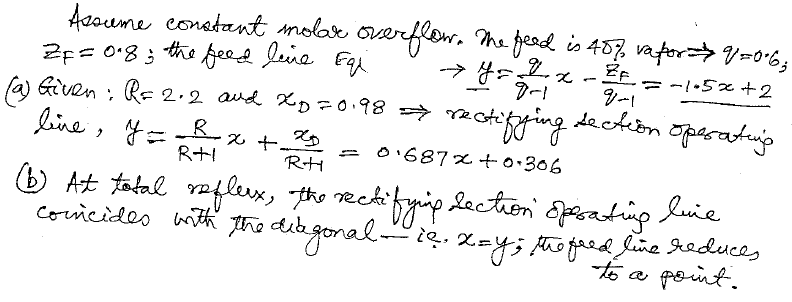 Assume constant molar overflow. The feed is 40% vapor ⇒ q=0.6;
Z_F = 0.8; the feed line Eqn → y = q/(q-1) x - Z_F/(q-1) = -1.5x + 2
(a) Given: R = 2.2 and x_D = 0.98 ⇒ rectifying section operating
line, y = R/(R+1) x + x_D/(R+1) = 0.687x + 0.306
(b) At total reflux, the rectifying section operating line
coincides with the diagonal — i.e. x=y; the feed line reduces
to a point.